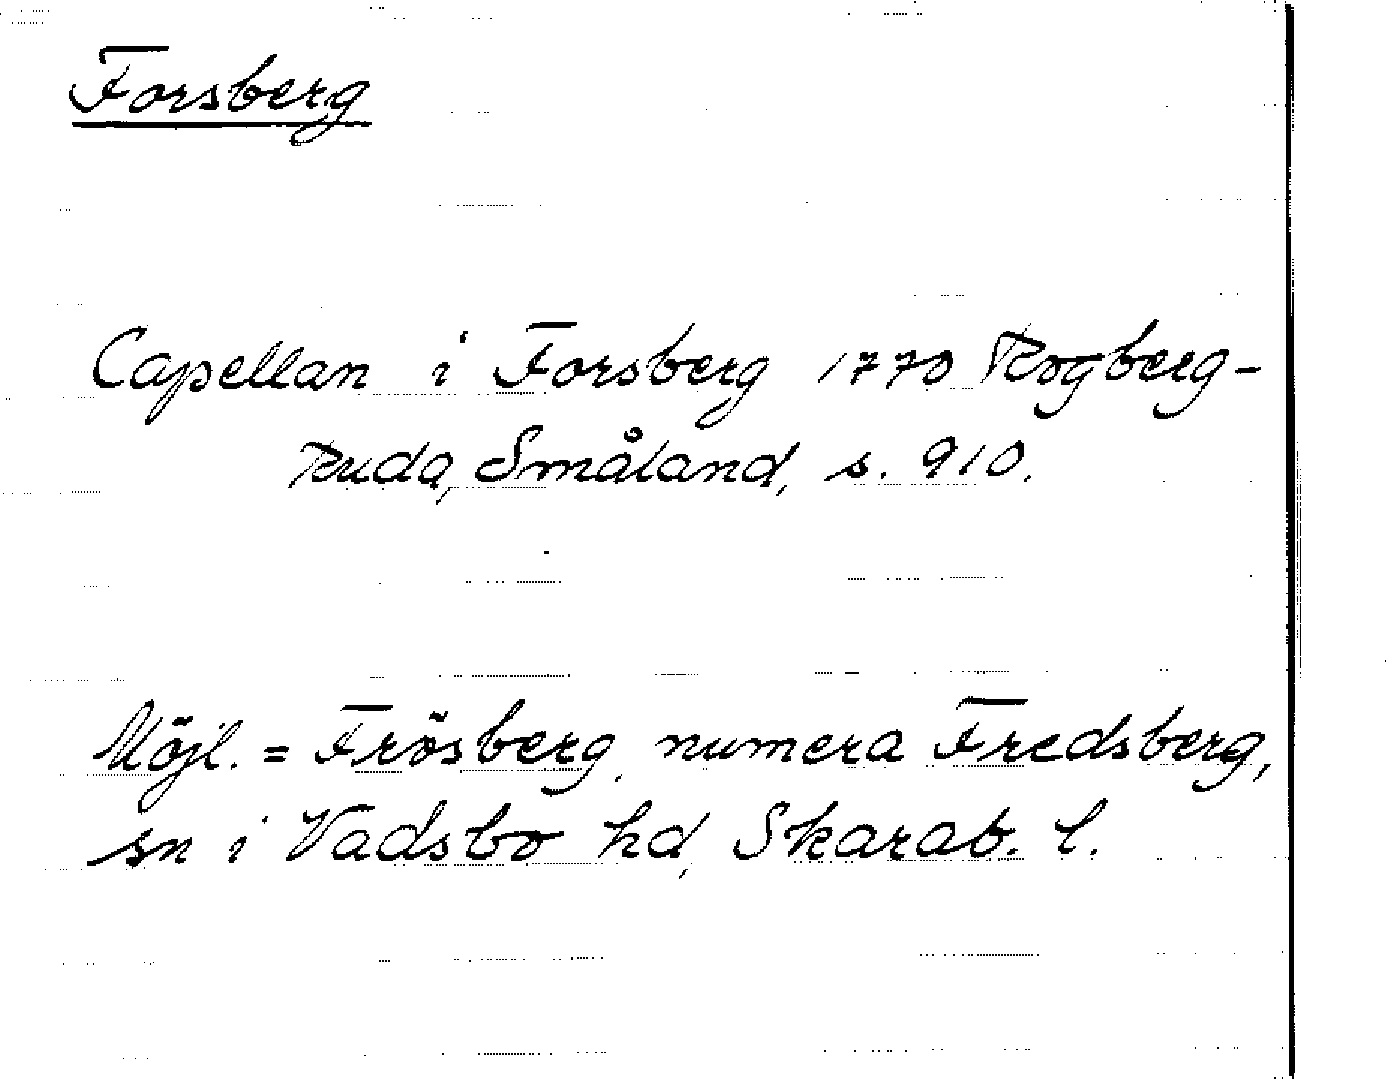 Forsberg
Capellan i Forsberg 1770 Rogberg-
Ruda, Småland, s. 910.
Möjl. = Frösberg, numera Fredsberg,
sn i Vadsbo hd, Skarab. l.